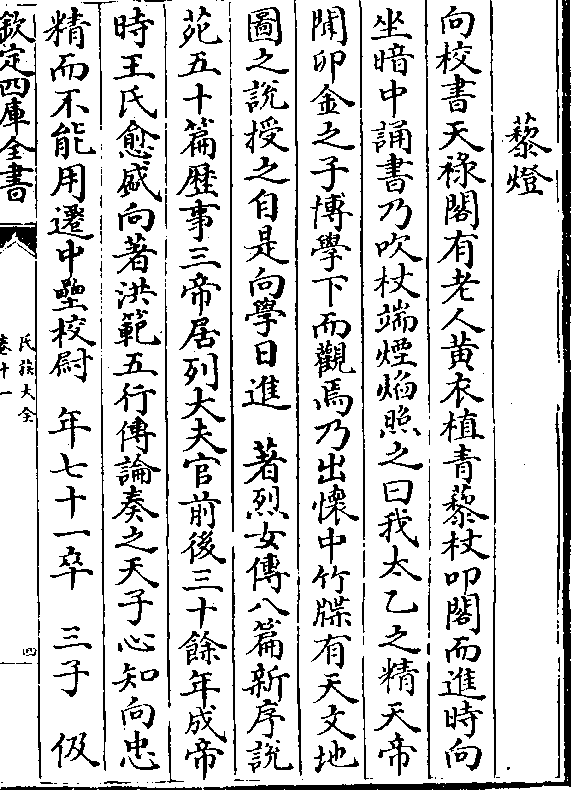 藜燈
向校書天祿閣有老人黄衣植青藜杖叩閣而進時向
坐暗中誦書乃吹杖端煙焰照之曰我太乙之精天帝
聞卯金之子博學下而觀焉乃出懷中竹牒有天文地
圖之說授之自是向學日進　著烈女傳八篇新序說
苑五十篇歴事三帝居列大夫官前後三十餘年成帝
時王氏愈盛向著洪範五行傳論奏之天子心知向忠
精而不能用遷中壘校尉　年七十一卒　三子　伋
欽定四庫全書
氏族大全
卷十一
四